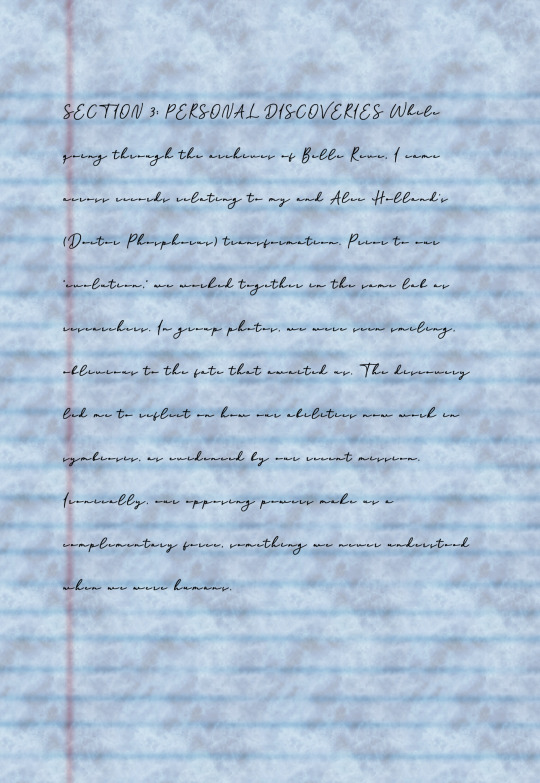 SECTION 3: PERSONAL DISCOVERIES While
going through the archives of Belle Reve, I came
across records relating to my and Alec Holland's
(Doctor Phosphorus) transformation. Prior to our
'evolution,' we worked together in the same lab as
researchers. In group photos, we were seen smiling,
oblivious to the fate that awaited us. The discovery
led me to reflect on how our abilities now work in
symbiosis, as evidenced by our recent mission.
Ironically, our opposing powers make us a
complementary force, something we never understood
when we were humans.